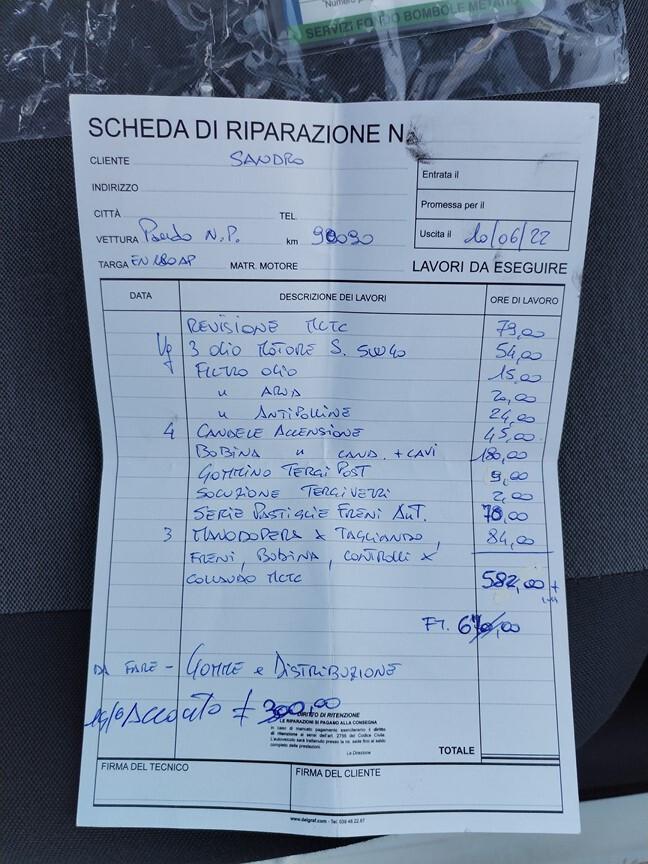 SERVIZI FONDO BOMBOLE METANO
SCHEDA DI RIPARAZIONE N
CLIENTE SANDRO
INDIRIZZO
CITTÀ TEL.
VETTURA Punto N.P. km 98090
TARGA MATR. MOTORE
Entrata il
Promessa per il
Uscita il 10/06/22
LAVORI DA ESEGUIRE
DATA DESCRIZIONE DEI LAVORI ORE DI LAVORO
REVISIONE MCTC 79,00
3 OLIO MOTORE S. 5W40 54,00
FILTRO OLIO 15,00
" ARIA 20,00
" ANTIPOLLINE 24,00
4 CANDELE ACCENSIONE 45,00
BOBINA " CAND. + CAVI 180,00
GOMMINO TERGI POST 9,00
SOLUZIONE TERGIVETRI 2,00
SERIE PASTIGLIE FRENI ANT. 70,00
3 MANODOPERA x TAGLIANDO, 84,00
FRENI, BOBINA, CONTROLLI x
COLLAUDO MCTC 582,00 +
FT.
DA FARE - GOMME e DISTRIBUZIONE
Acconto € 300,00
DIRITTO DI RITENZIONE
LE RIPARAZIONI SI PAGANO ALLA CONSEGNA
In caso di mancato pagamento eserciteremo il diritto
di ritenzione ai sensi dell'art. 2756 del Codice Civile.
L'autoveicolo sarà trattenuto presso la ns. sede fino al saldo
completo della prestazione.
La Direzione
TOTALE
FIRMA DEL TECNICO FIRMA DEL CLIENTE
www.delgraf.com - Tel.